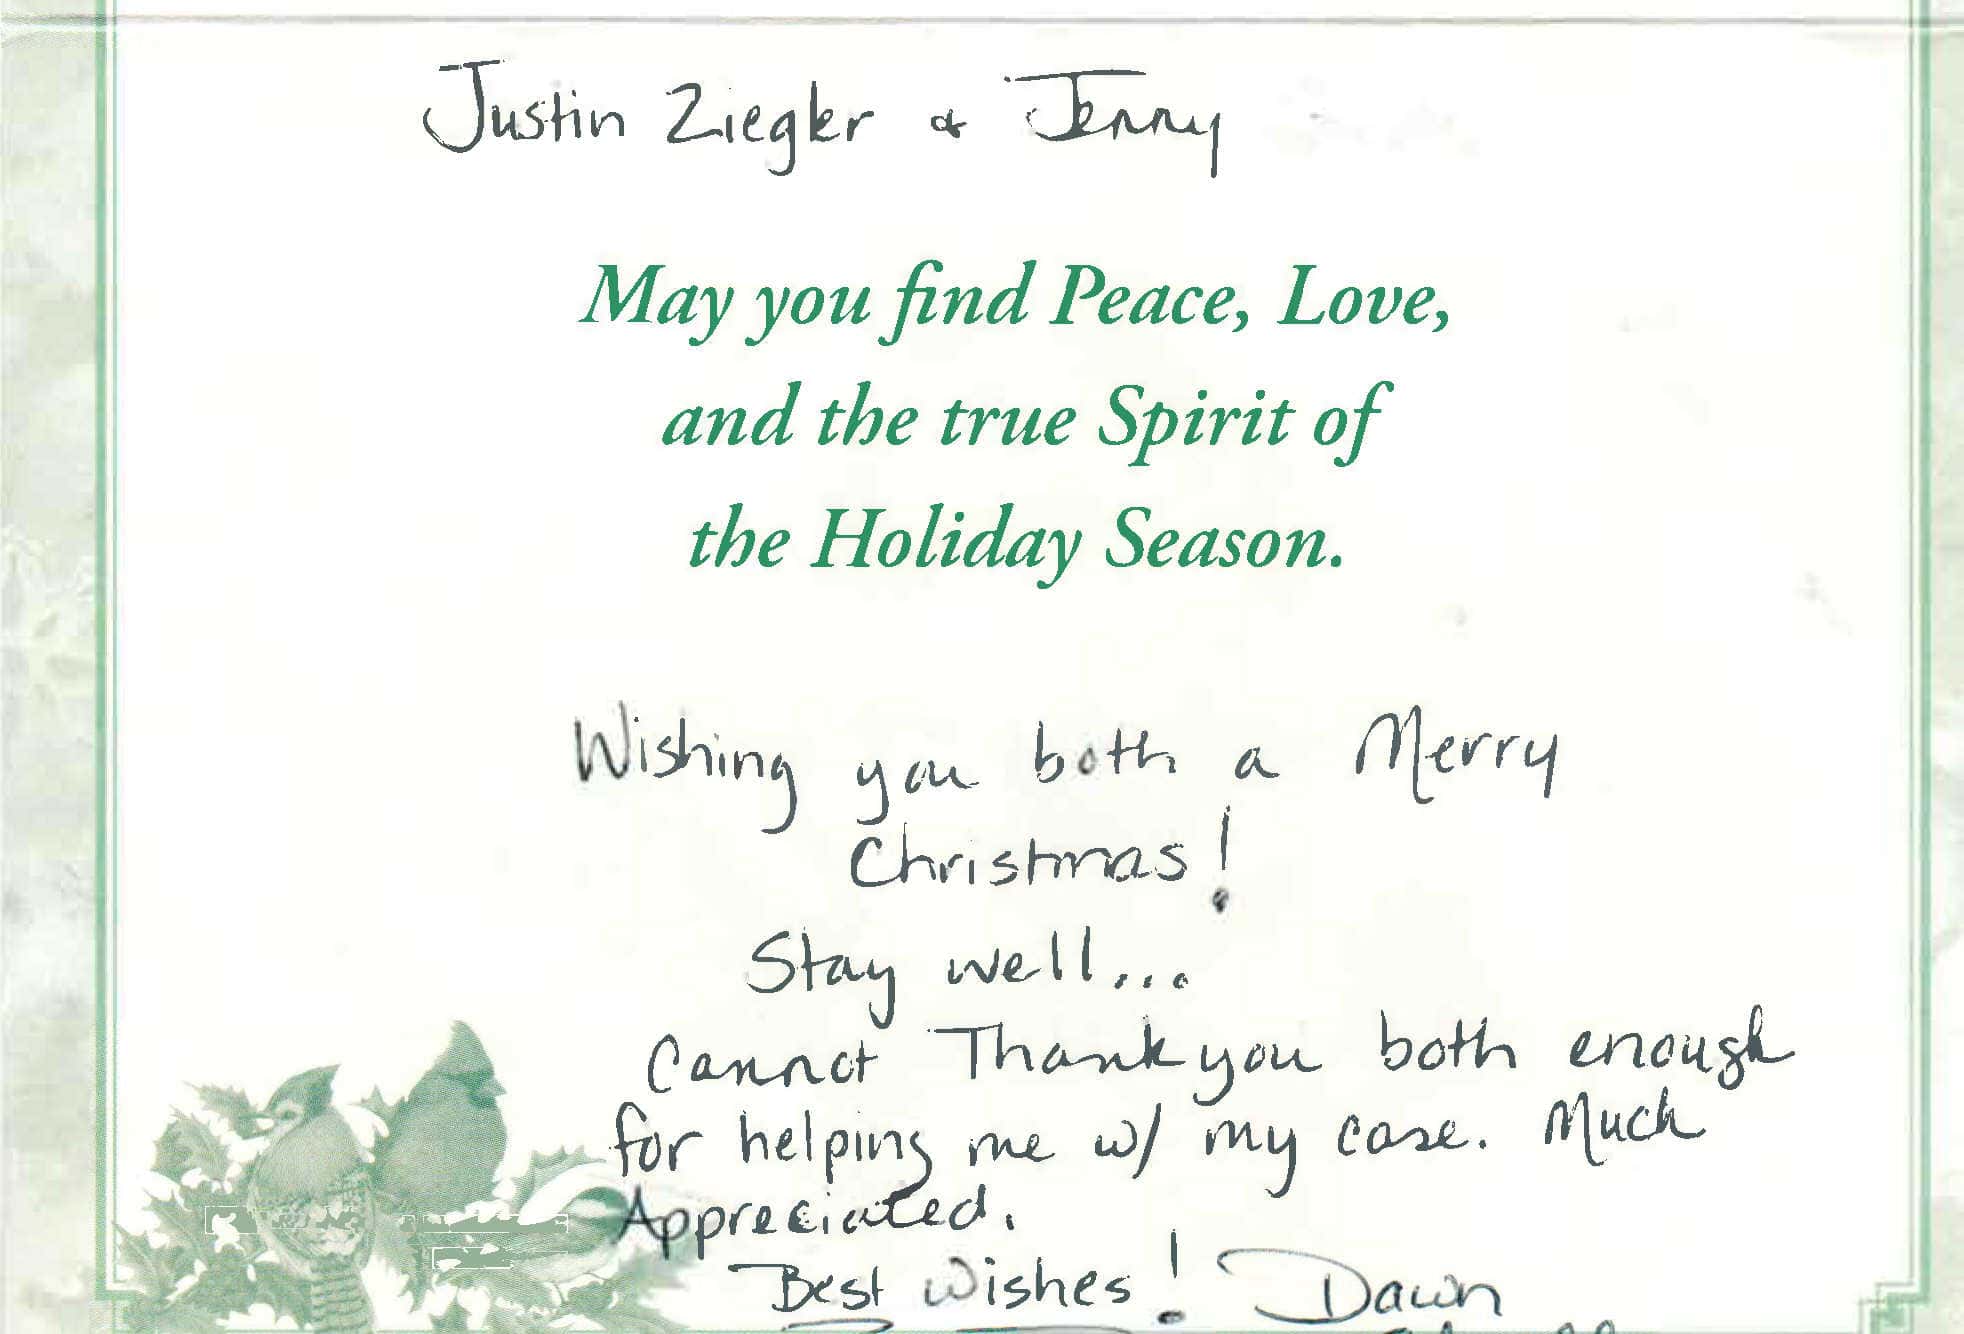 Justin Ziegler & Jenny
May you find Peace, Love,
and the true Spirit of
the Holiday Season.
Wishing you both a Merry
Christmas!
Stay well...
Cannot Thank you both enough
for helping me w/ my case. Much
Appreciated.
Best Wishes! Dawn